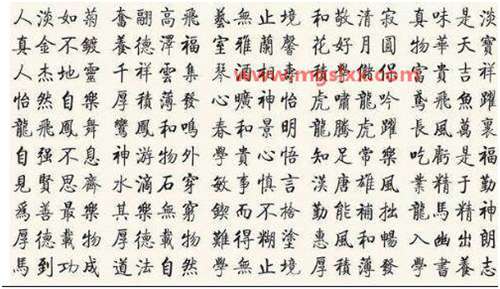 人淡如菊 奮翮高飛 藝無止境 和敬清寂 真味是淡
真金不鍍 養德澤福 室雅蘭馨 花好月圓 物華天寶
人杰地靈 千祥雲集 琴 侶 富貴吉祥
www.mgslxx.com
怡然自樂 厚積薄發 心曠神怡 虎嘯龍吟 鳶飛魚躍
龍飛鳳舞 鸞鳳和鳴 春和景明 龍騰虎躍 長風萬裏
自强不息 神游物外 學貴心悟 知足常樂 吃虧是福
見賢思齊 水滴石穿 敏事慎言 漢唐雄風 業精于勤
爲善最樂 其樂無窮 鍥而不捨 勤能補拙 龍馬精神
厚德載物 厚德載物 難得糊塗 惠風和暢 入幽出朗
馬到功成 道法自然 學無止境 厚積薄發 學書養志